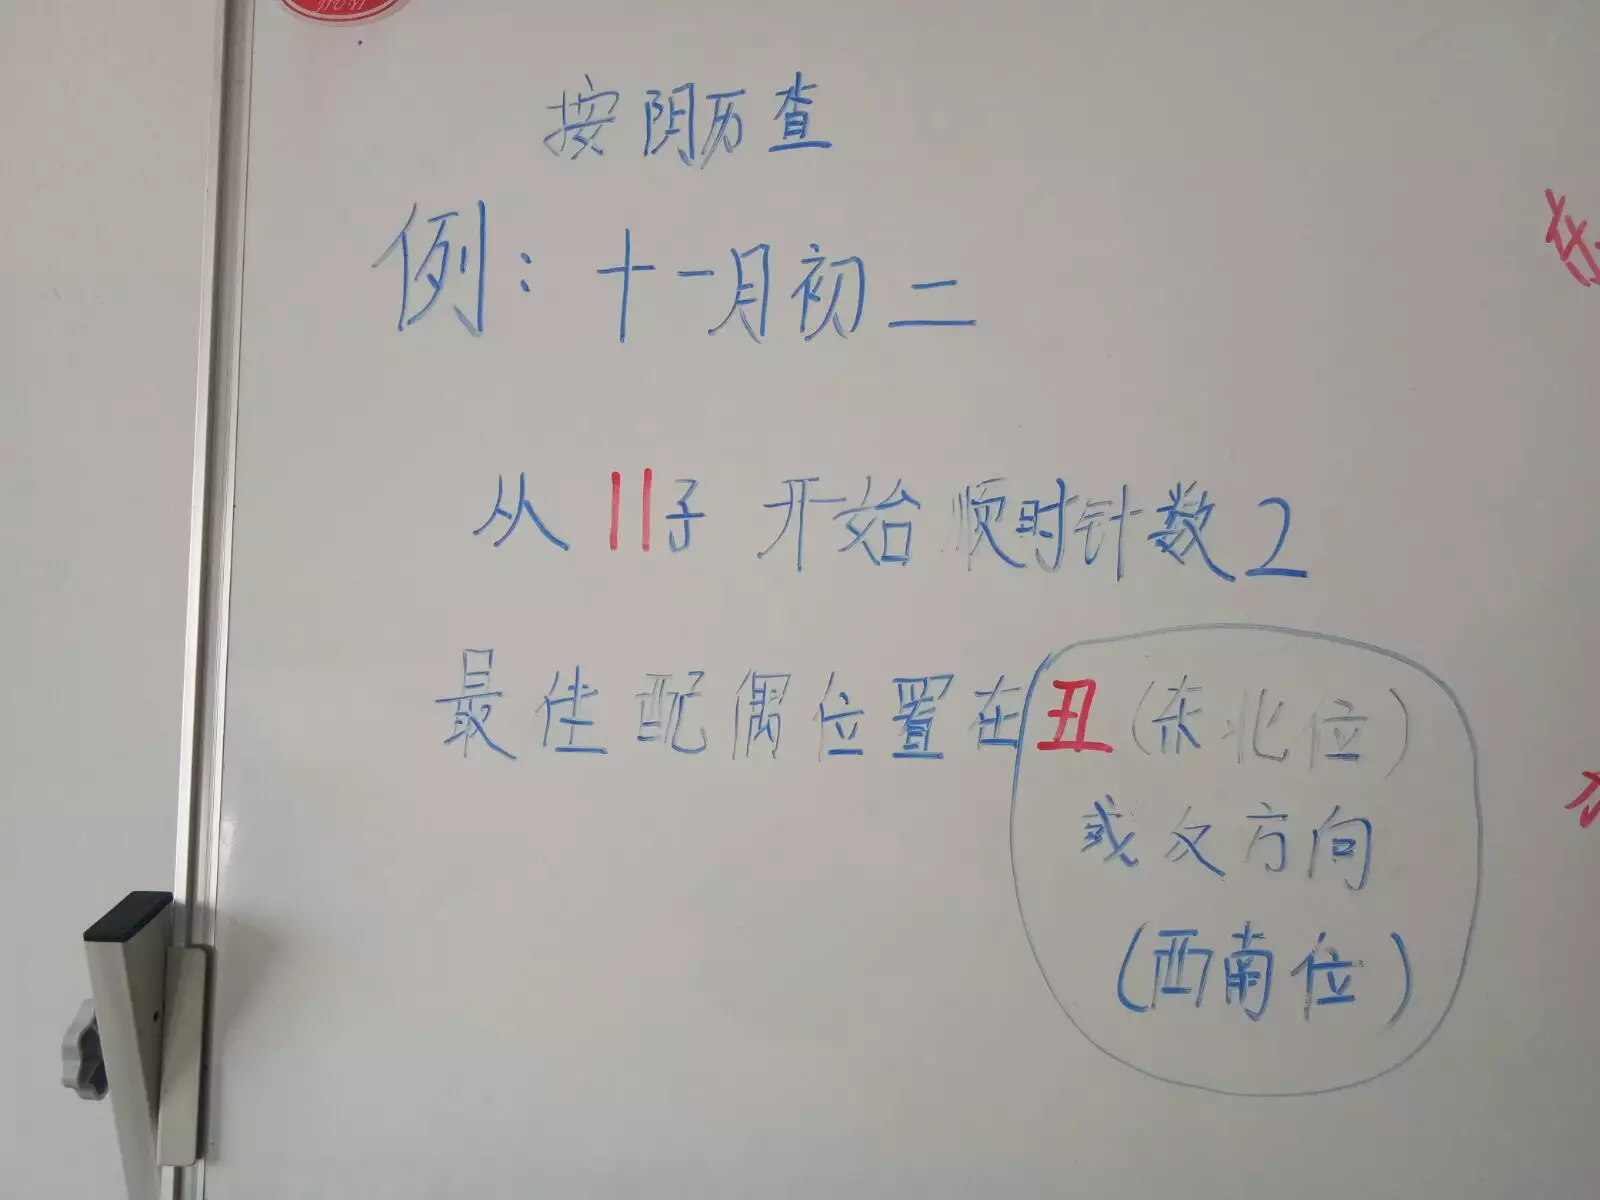 按阴历查
例：十一月初二
从11子 开始顺时针数2
最佳配偶位置在丑(东北位)
或反方向
(西南位)